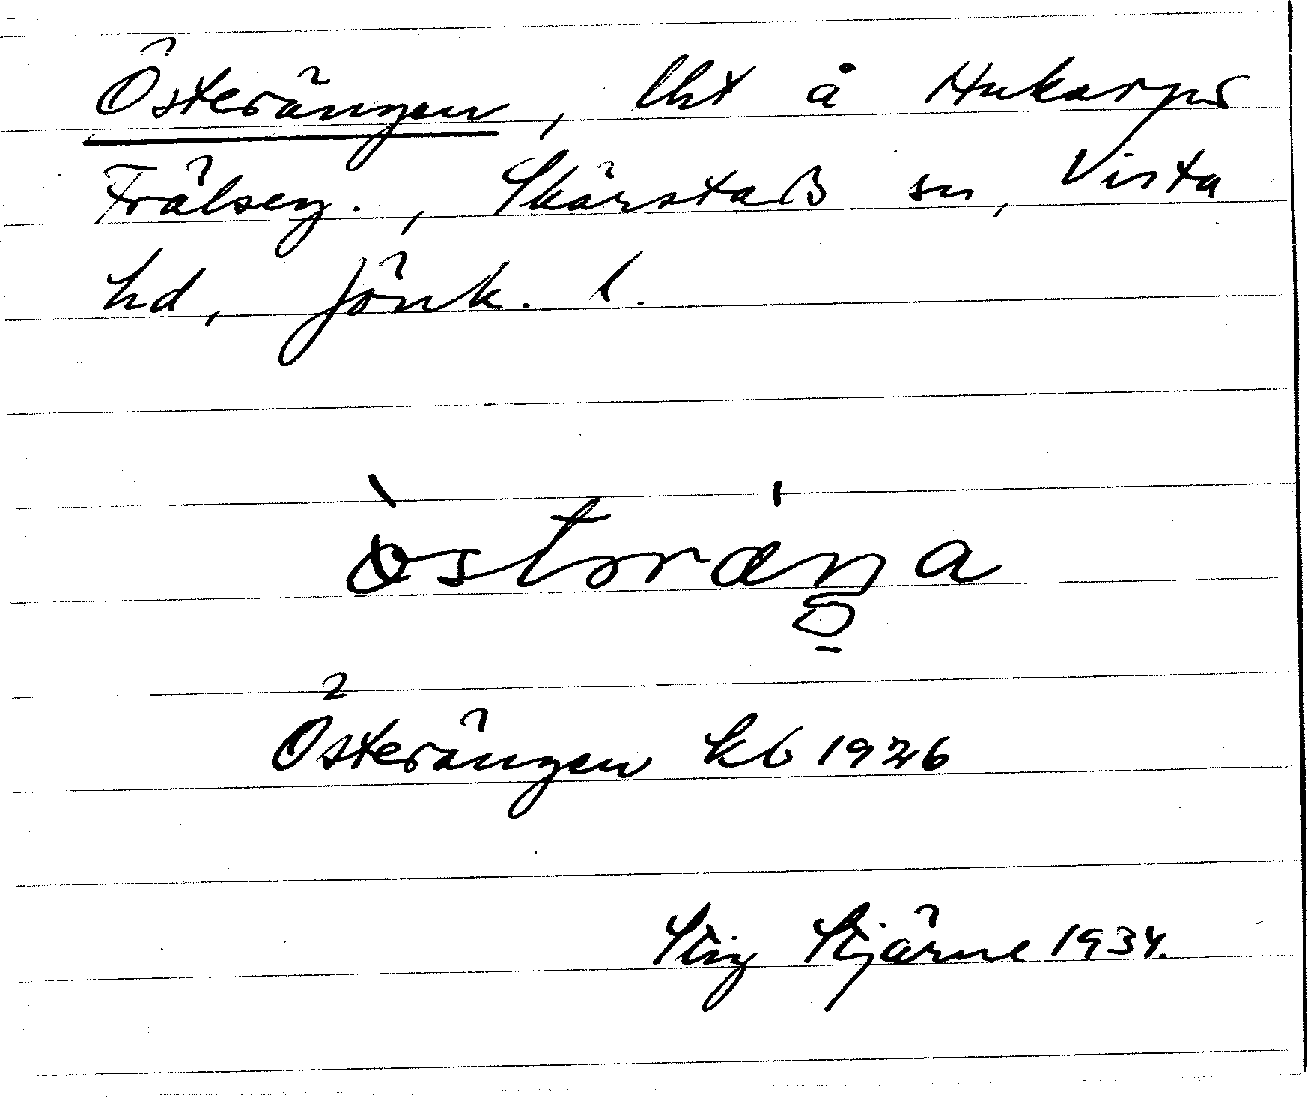 Österängen, lht å Hukarps
Frälseg., Skärstads sn, Vista
hd, Jönk. l.
östɷræŋa
Österängen kb 1926
Stig Stjärne 1934.